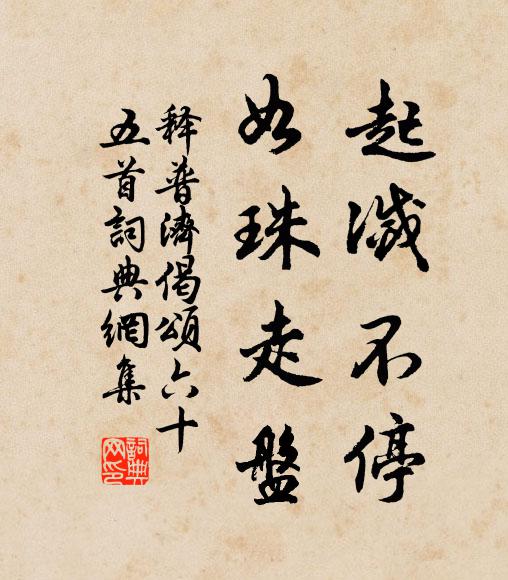 起滅不停
如珠走盤
释普濟偈頌六十
五首詞典網集
詞典网印